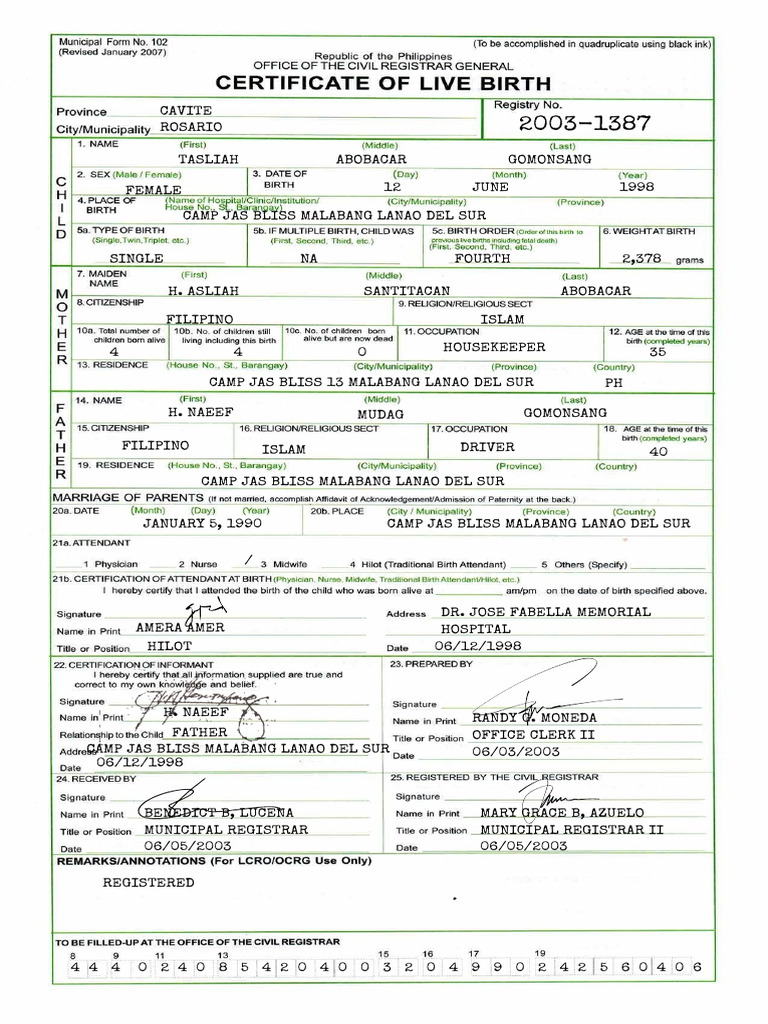 Municipal Form No. 102
(Revised January 2007)
(To be accomplished in quadruplicate using black ink)
Republic of the Philippines
OFFICE OF THE CIVIL REGISTRAR GENERAL
CERTIFICATE OF LIVE BIRTH
Province CAVITE
City/Municipality ROSARIO
Registry No.
2003-1387
CHILD
1. NAME (First) (Middle) (Last)
TASLIAH ABOBACAR GOMONSANG
2. SEX (Male / Female) 3. DATE OF BIRTH (Day) (Month) (Year)
FEMALE 12 JUNE 1998
4. PLACE OF BIRTH (Name of Hospital/Clinic/Institution/ House No., St., Barangay) (City/Municipality) (Province)
CAMP JAS BLISS MALABANG LANAO DEL SUR
5a. TYPE OF BIRTH (Single,Twin,Triplet, etc.) 5b. IF MULTIPLE BIRTH, CHILD WAS (First, Second, Third, etc.) 5c. BIRTH ORDER (Order of this birth to previous live births including fetal death) (First, Second, Third, etc.) 6. WEIGHT AT BIRTH
SINGLE NA FOURTH 2,378 grams
MOTHER
7. MAIDEN NAME (First) (Middle) (Last)
H. ASLIAH SANTITACAN ABOBACAR
8. CITIZENSHIP 9. RELIGION/RELIGIOUS SECT
FILIPINO ISLAM
10a. Total number of children born alive 10b. No. of children still living including this birth 10c. No. of children born alive but are now dead 11. OCCUPATION 12. AGE at the time of this birth (completed years)
4 4 0 HOUSEKEEPER 35
13. RESIDENCE (House No., St., Barangay) (City/Municipality) (Province) (Country)
CAMP JAS BLISS 13 MALABANG LANAO DEL SUR PH
FATHER
14. NAME (First) (Middle) (Last)
H. NAEEF MUDAG GOMONSANG
15. CITIZENSHIP 16. RELIGION/RELIGIOUS SECT 17. OCCUPATION 18. AGE at the time of this birth (completed years)
FILIPINO ISLAM DRIVER 40
19. RESIDENCE (House No., St., Barangay) (City/Municipality) (Province) (Country)
CAMP JAS BLISS MALABANG LANAO DEL SUR
MARRIAGE OF PARENTS (If not married, accomplish Affidavit of Acknowledgement/Admission of Paternity at the back.)
20a. DATE (Month) (Day) (Year) 20b. PLACE (City / Municipality) (Province) (Country)
JANUARY 5, 1990 CAMP JAS BLISS MALABANG LANAO DEL SUR
21a. ATTENDANT
1 Physician 2 Nurse / 3 Midwife 4 Hilot (Traditional Birth Attendant) 5 Others (Specify)
21b. CERTIFICATION OF ATTENDANT AT BIRTH (Physician, Nurse, Midwife, Traditional Birth Attendant/Hilot, etc.)
I hereby certify that I attended the birth of the child who was born alive at am/pm on the date of birth specified above.
Signature Address DR. JOSE FABELLA MEMORIAL
Name in Print AMERA AMER HOSPITAL
Title or Position HILOT Date 06/12/1998
22. CERTIFICATION OF INFORMANT
I hereby certify that all information supplied are true and
correct to my own knowledge and belief.
Signature
Name in Print H. NAEEF
Relationship to the Child FATHER
Address CAMP JAS BLISS MALABANG LANAO DEL SUR
Date 06/12/1998
23. PREPARED BY
Signature
Name in Print RANDY G. MONEDA
Title or Position OFFICE CLERK II
Date 06/03/2003
24. RECEIVED BY
Signature
Name in Print BENEDICT B, LUCENA
Title or Position MUNICIPAL REGISTRAR
Date 06/05/2003
25. REGISTERED BY THE CIVIL REGISTRAR
Signature
Name in Print MARY GRACE B, AZUELO
Title or Position MUNICIPAL REGISTRAR II
Date 06/05/2003
REMARKS/ANNOTATIONS (For LCRO/OCRG Use Only)
REGISTERED
TO BE FILLED-UP AT THE OFFICE OF THE CIVIL REGISTRAR
8 9 11 13 15 16 17 19
4 4 4 0 2 4 0 8 5 4 2 0 4 0 0 3 2 0 4 9 9 0 2 4 2 5 6 0 4 0 6